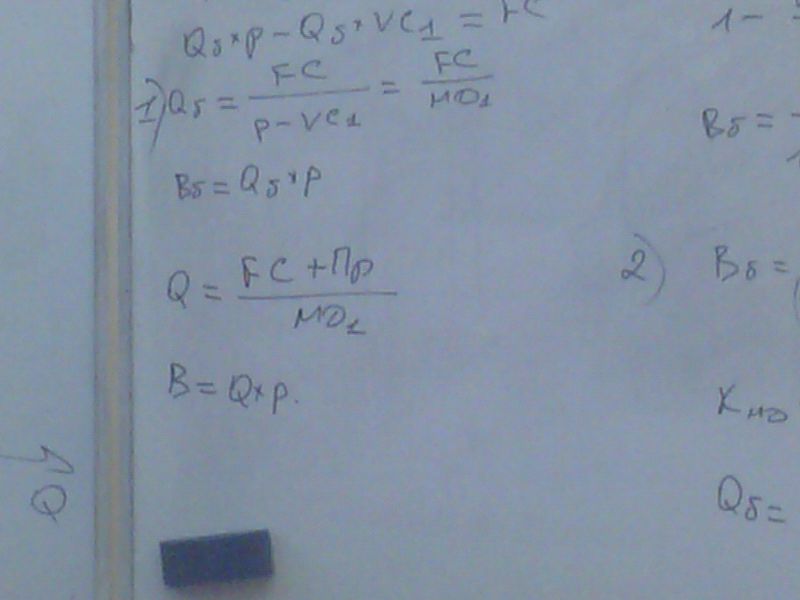 Qб*p - Qб*VC1 = FC
1) Qб = FC / (p - VC1) = FC / МД1
Bб = Qб*p
Q = (FC + Пр) / МД1
B = Q*p.
1 -
Bб =
2) Bб =
Kмд
Qб =
Q